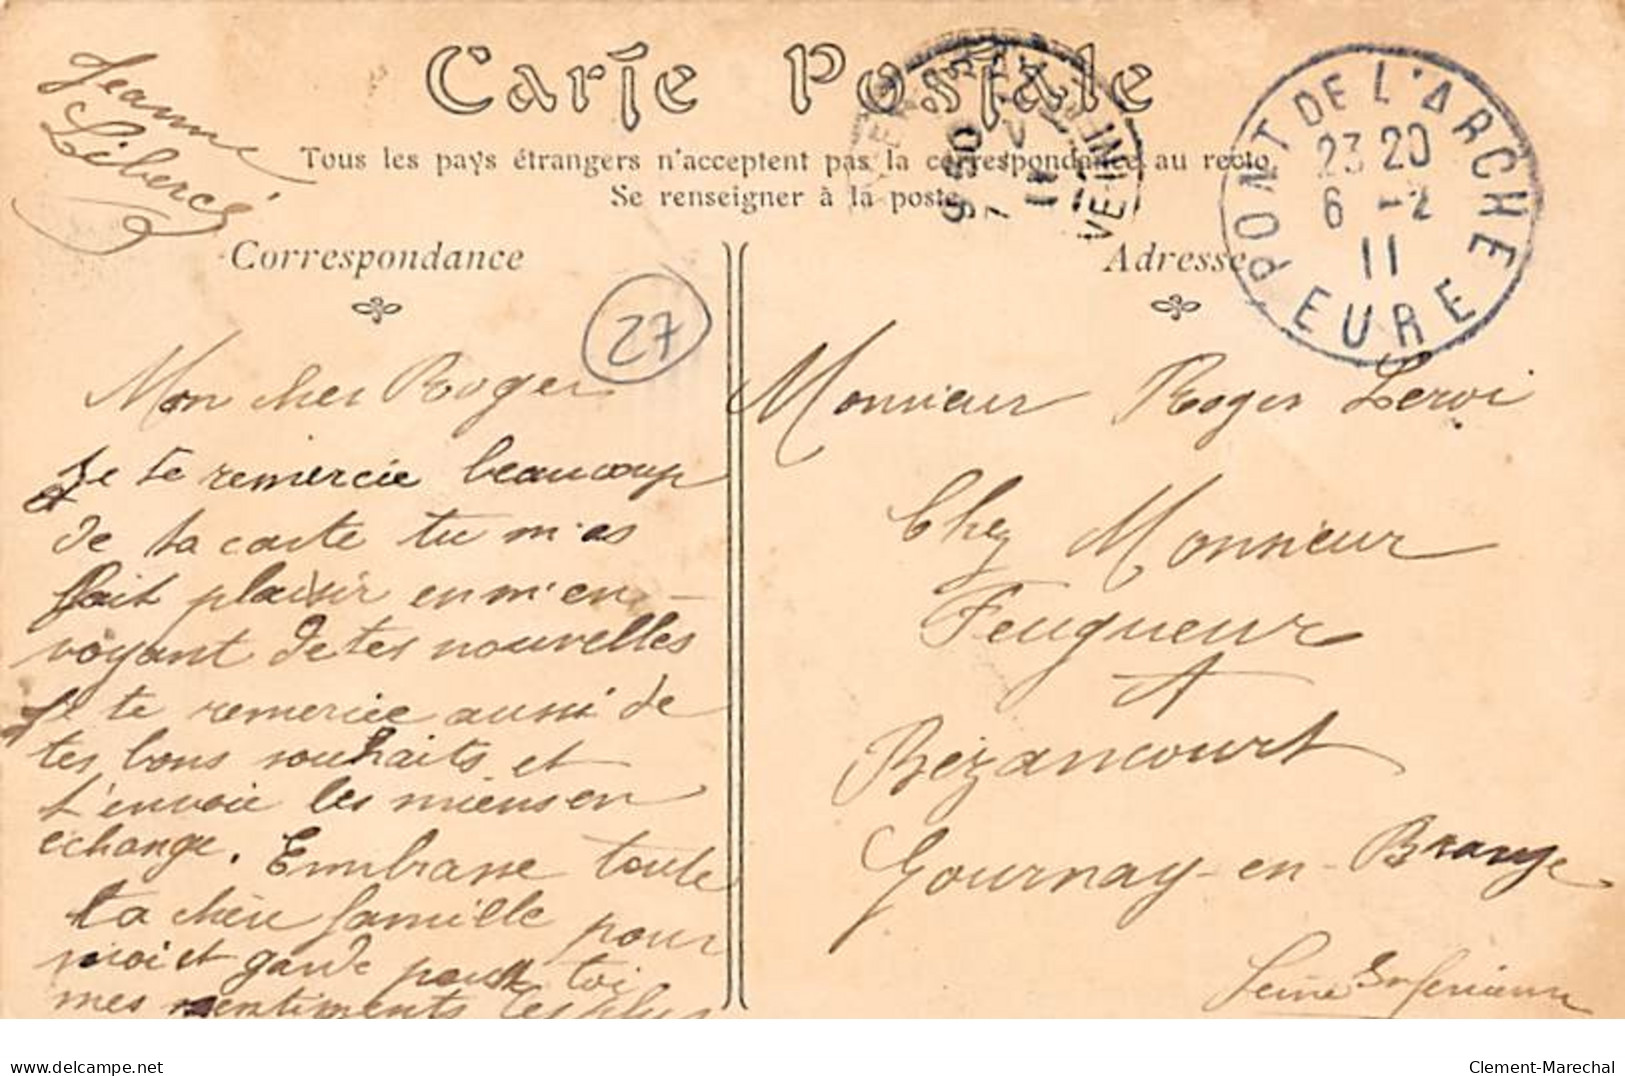 Carte Postale
Tous les pays étrangers n'acceptent pas la correspondance au recto
Se renseigner à la poste
Correspondance
Adresse
PONT DE L'ARCHE
23 20
6 -2
11
EURE
9 50
7
11
27
Jeanne
Mon cher Roger
Je te remercie beaucoup
de ta carte tu m'as
fait plaisir en m'en-
voyant de tes nouvelles
Je te remercie aussi de
tes bons souhaits et
t'envoie les miens en
échange. Embrasse toute
ta chère famille pour
moi et garde pour toi
mes sentiments les plus
Monsieur Roger Leroi
Chez Monsieur
Feugueur
A
Bézancourt
Gournay-en-Braye
Seine Inférieure
delcampe.net
Clement-Marechal